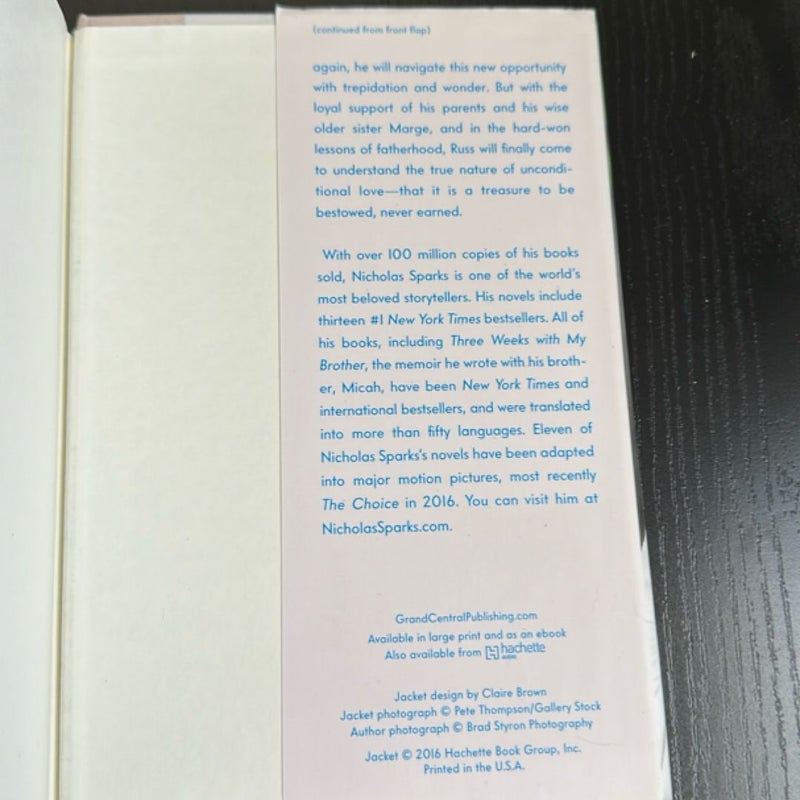 (continued from front flap)
again, he will navigate this new opportunity
with trepidation and wonder. But with the
loyal support of his parents and his wise
older sister Marge, and in the hard-won
lessons of fatherhood, Russ will finally come
to understand the true nature of uncondi-
tional love—that it is a treasure to be
bestowed, never earned.
With over 100 million copies of his books
sold, Nicholas Sparks is one of the world's
most beloved storytellers. His novels include
thirteen #1 New York Times bestsellers. All of
his books, including Three Weeks with My
Brother, the memoir he wrote with his broth-
er, Micah, have been New York Times and
international bestsellers, and were translated
into more than fifty languages. Eleven of
Nicholas Sparks's novels have been adapted
into major motion pictures, most recently
The Choice in 2016. You can visit him at
NicholasSparks.com.
GrandCentralPublishing.com
Available in large print and as an ebook
Also available from hachette
Jacket design by Claire Brown
Jacket photograph © Pete Thompson/Gallery Stock
Author photograph © Brad Styron Photography
Jacket © 2016 Hachette Book Group, Inc.
Printed in the U.S.A.